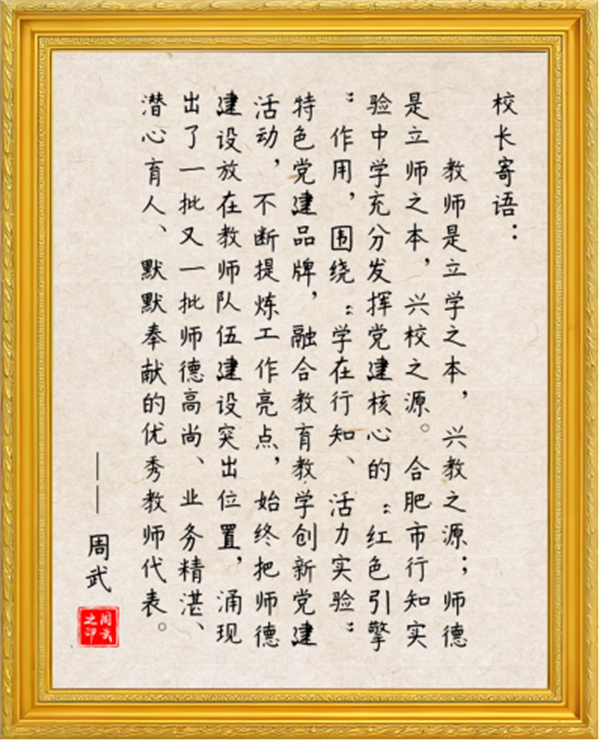 校长寄语：
教师是立学之本，兴教之源；师德
是立师之本，兴校之源。合肥市行知实
验中学充分发挥党建核心的“红色引擎
”作用，围绕“学在行知、活力实验”
特色党建品牌，融合教育教学创新党建
活动，不断提炼工作亮点，始终把师德
建设放在教师队伍建设突出位置，涌现
出了一批又一批师德高尚、业务精湛、
潜心育人、默默奉献的优秀教师代表。
——周武
周武
之印